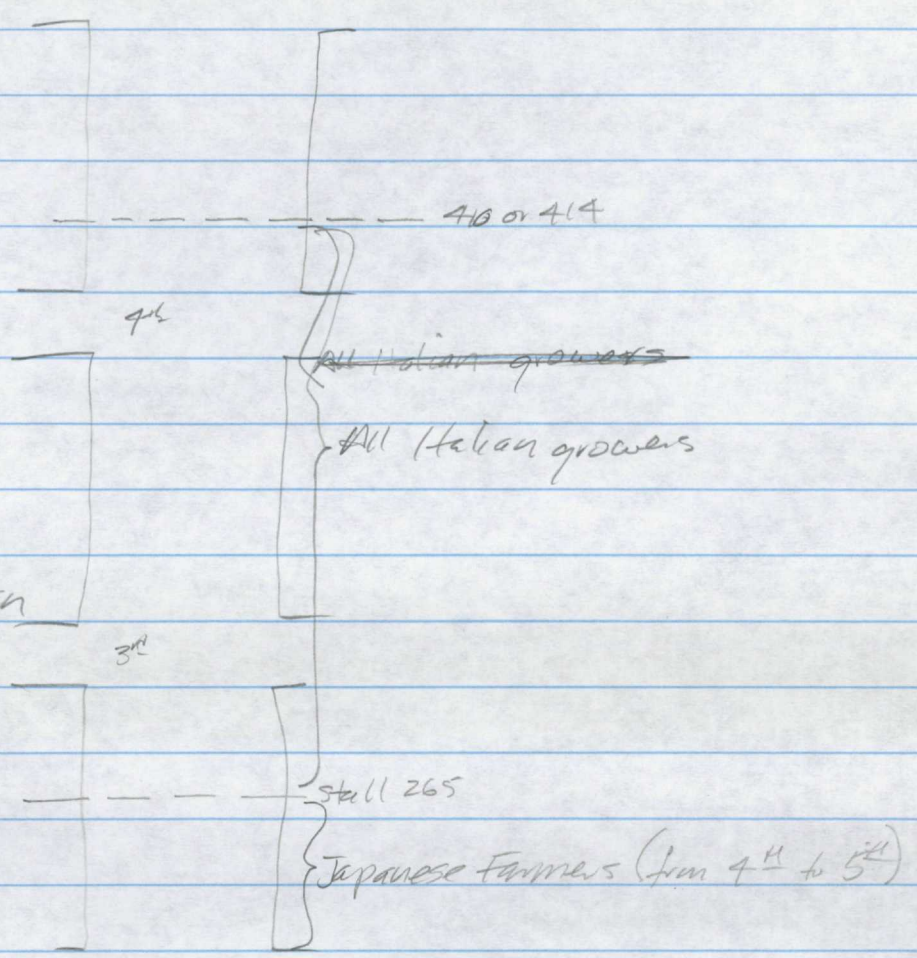 410 or 414
4th
All Italian growers
All Italian growers
3rd
Stall 265
Japanese Farmers (from 4th to 5th)